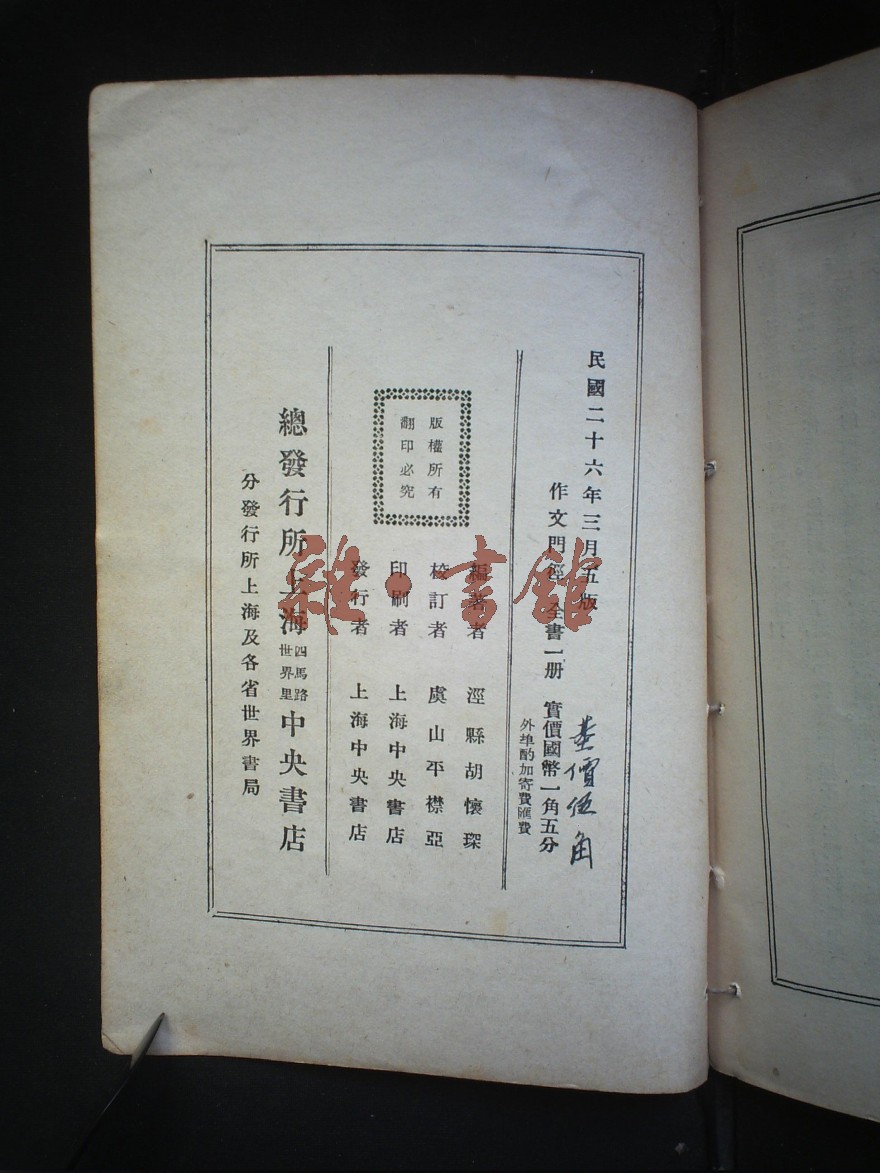 民國二十六年三月五版
作文門徑 全書一册 實價國幣一角五分
外埠酌加寄費匯費
價伍角
版權所有
翻印必究
編著者 涇縣胡懷琛
校訂者 虞山平襟亞
印刷者 上海中央書店
發行者 上海中央書店
總發行所 上海 四馬路 世界里 中央書店
分發行所上海及各省世界書局
雜·書館